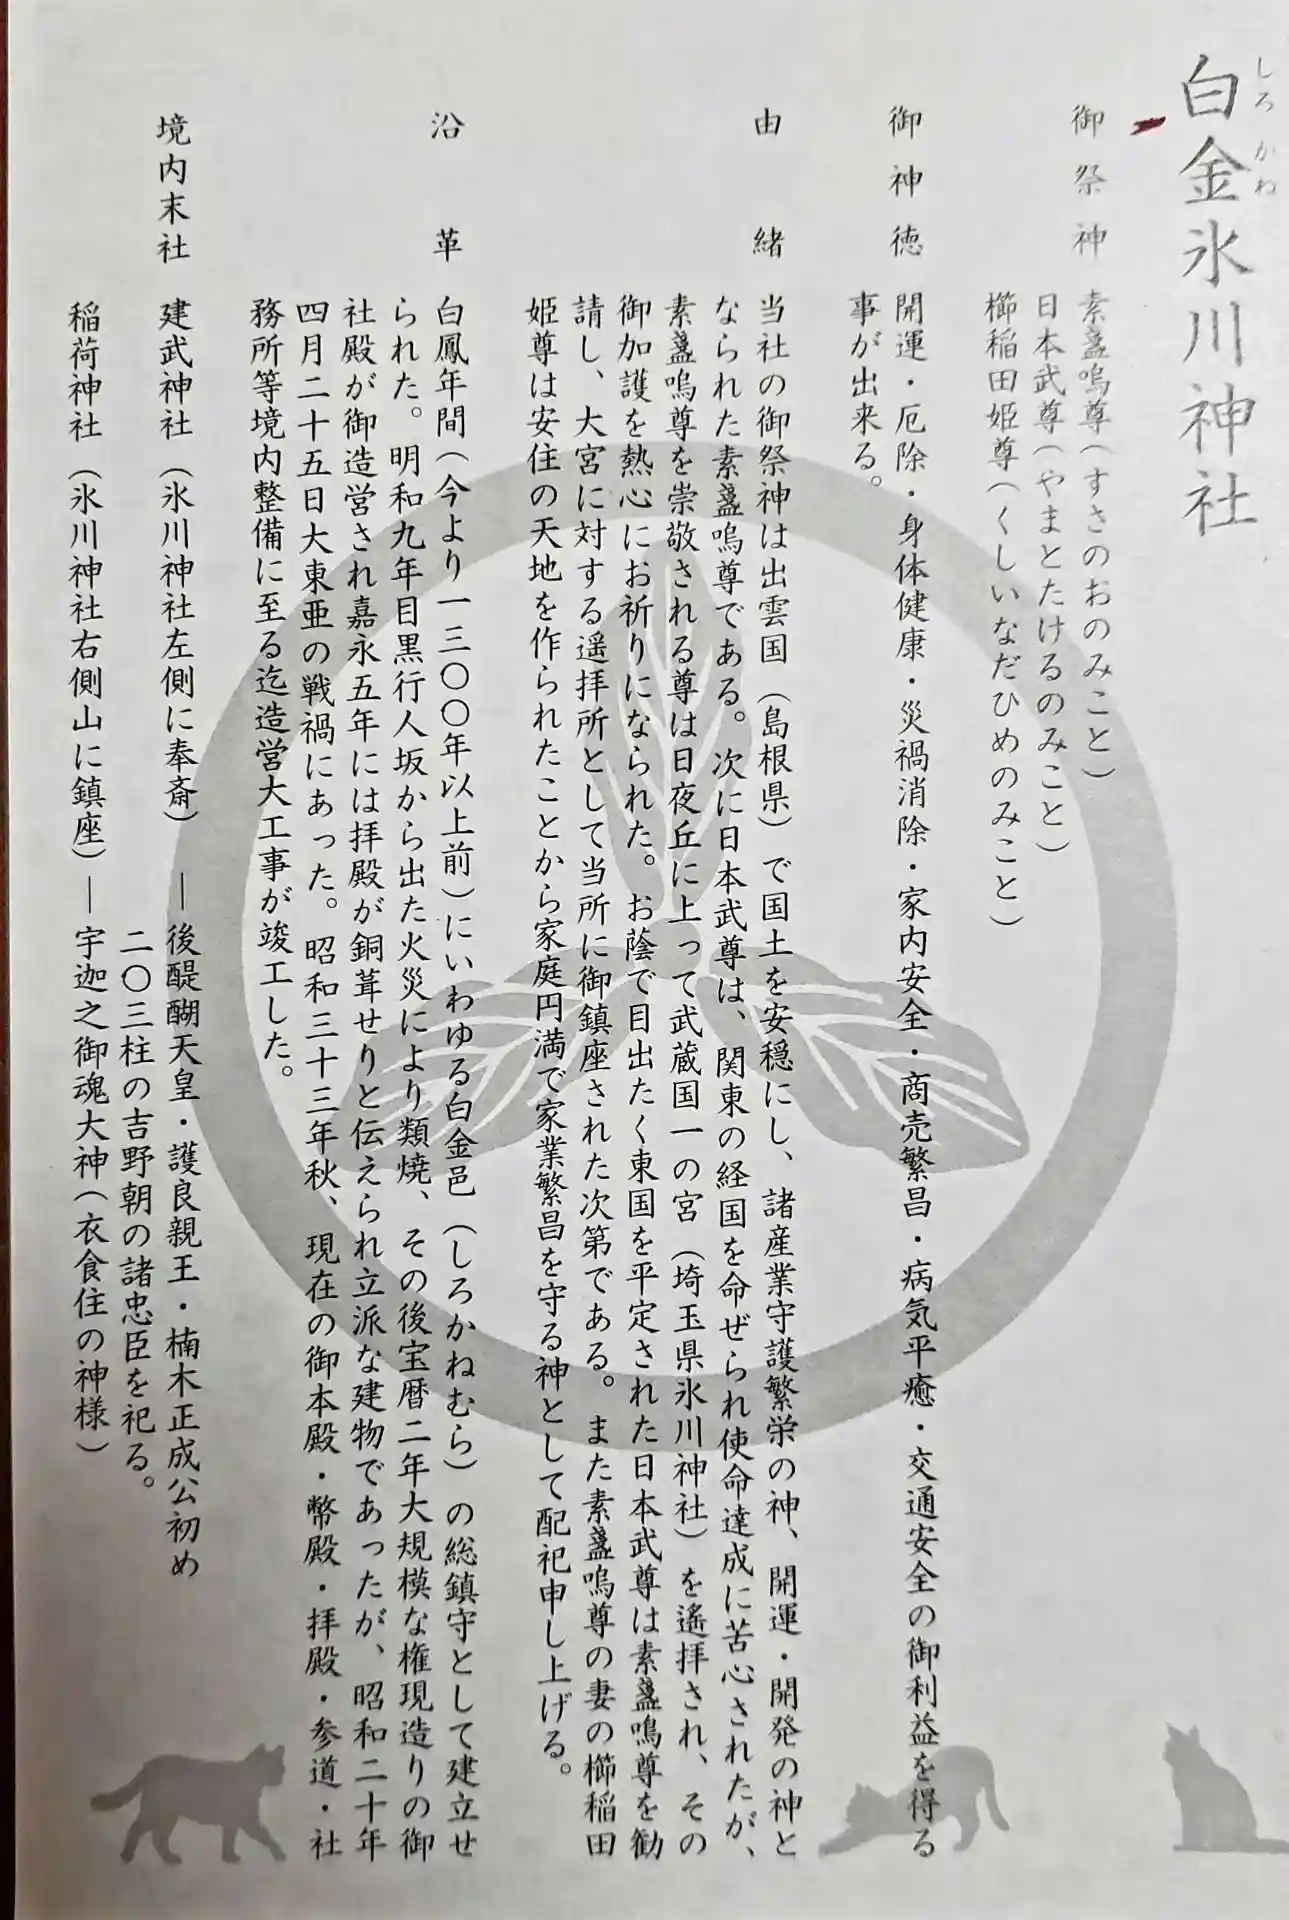 白金氷川神社
しろかね
御祭神 素盞嗚尊(すさのおのみこと)
日本武尊(やまとたけるのみこと)
櫛稲田姫尊(くしいなだひめのみこと)
御神徳 開運・厄除・身体健康・災禍消除・家内安全・商売繁昌・病気平癒・交通安全の御利益を得る
事が出来る。
由緒 当社の御祭神は出雲国(島根県)で国土を安穏にし、諸産業守護繁栄の神、開運・開発の神と
なられた素盞嗚尊である。次に日本武尊は、関東の経国を命ぜられ使命達成に苦心されたが、
素盞嗚尊を崇敬される尊は日夜丘に上って武蔵国一の宮(埼玉県氷川神社)を遙拝され、その
御加護を熱心にお祈りになられた。お蔭で目出たく東国を平定された日本武尊は素盞嗚尊を勧
請し、大宮に対する遥拝所として当所に御鎮座された次第である。また素盞嗚尊の妻の櫛稲田
姫尊は安住の天地を作られたことから家庭円満で家業繁昌を守る神として配祀申し上げる。
沿革 白鳳年間(今より一三〇〇年以上前)にいわゆる白金邑(しろかねむら)の総鎮守として建立せ
られた。明和九年目黒行人坂から出た火災により類焼、その後宝暦二年大規模な権現造りの御
社殿が御造営され嘉永五年には拝殿が銅葺せりと伝えられ立派な建物であったが、昭和二十年
四月二十五日大東亜の戦禍にあった。昭和三十三年秋、現在の御本殿・幣殿・拝殿・参道・社
務所等境内整備に至る迄造営大工事が竣工した。
境内末社 建武神社(氷川神社左側に奉斎)―後醍醐天皇・護良親王・楠木正成公初め
二〇三柱の吉野朝の諸忠臣を祀る。
稲荷神社(氷川神社右側山に鎮座)―宇迦之御魂大神(衣食住の神様)